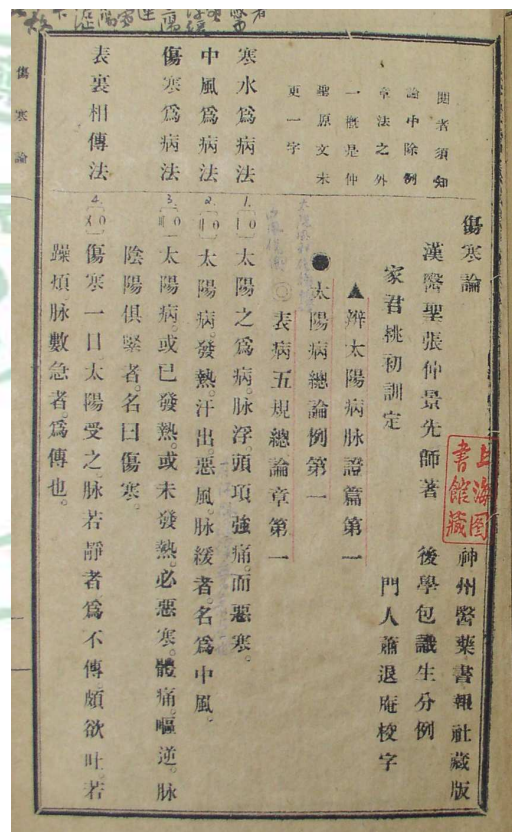 傷寒論
神州醫藥書報社藏版
漢醫聖張仲景先師著
後學包識生分例
家君桃初訓定
門人蕭退庵校字
▲辨太陽病脉證篇第一
●太陽病總論例第一
◎表病五規總論章第一
閱者須知
論中除例
章法之外
一概是仲
聖原文未
更一字
寒水爲病法
1.
太陽之爲病。脉浮。頭項強痛。而惡寒。
中風爲病法
2.
太陽病。發熱。汗出。惡風。脉緩者。名爲中風。
傷寒爲病法
3.
太陽病。或已發熱。或未發熱。必惡寒。體痛嘔逆。脉
陰陽俱緊者。名曰傷寒。
表裏相傳法
4.
傷寒一日。太陽受之。脉若靜者。爲不傳。頗欲吐。若
躁煩脉數急者。爲傳也。
傷寒論
上海图
書館藏